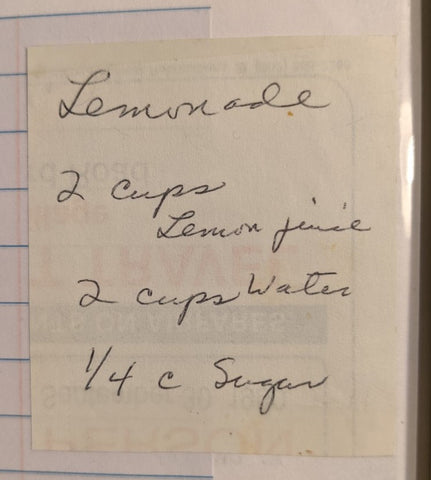 Lemonade
2 cups
Lemon juice
2 cups Water
1/4 c Sugar